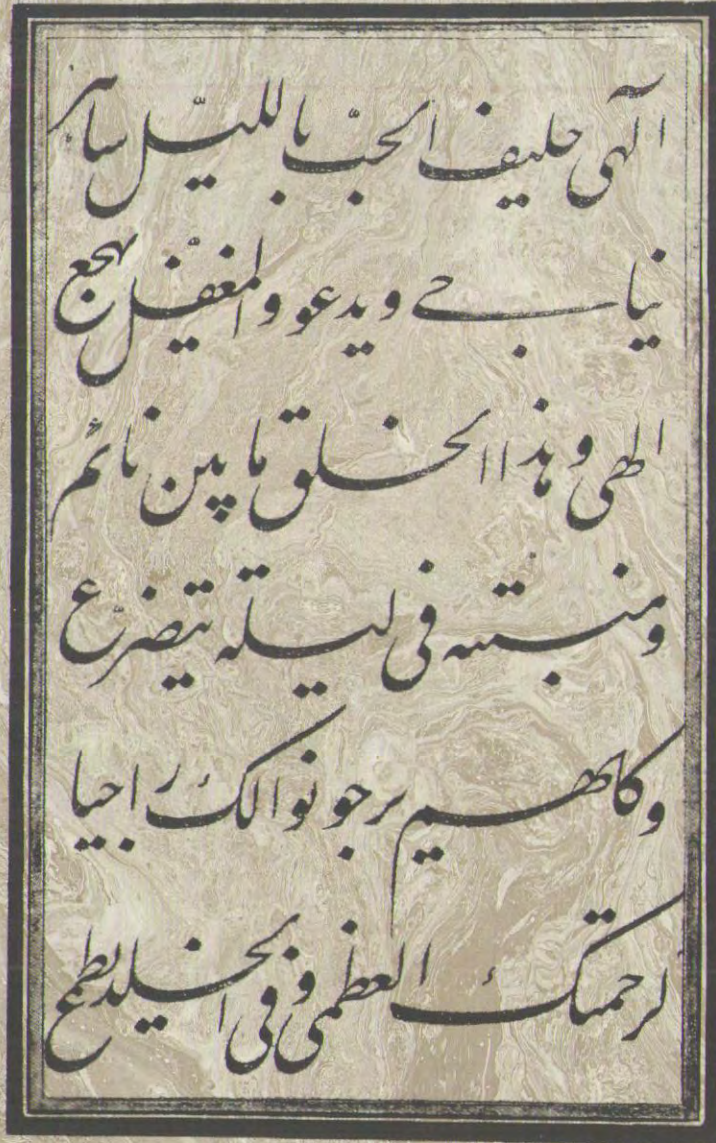 الهی حلیف الحبّ باللیّل ساهر
یناجی ویدعو والمغفّل یهجع
الهی وهذا الخلق ما بین نائم
ومنتبه فی لیله یتضرّع
وکلهم یرجو نوالک راجیا
لرحمتک العظمی وفی الخلد یطمع